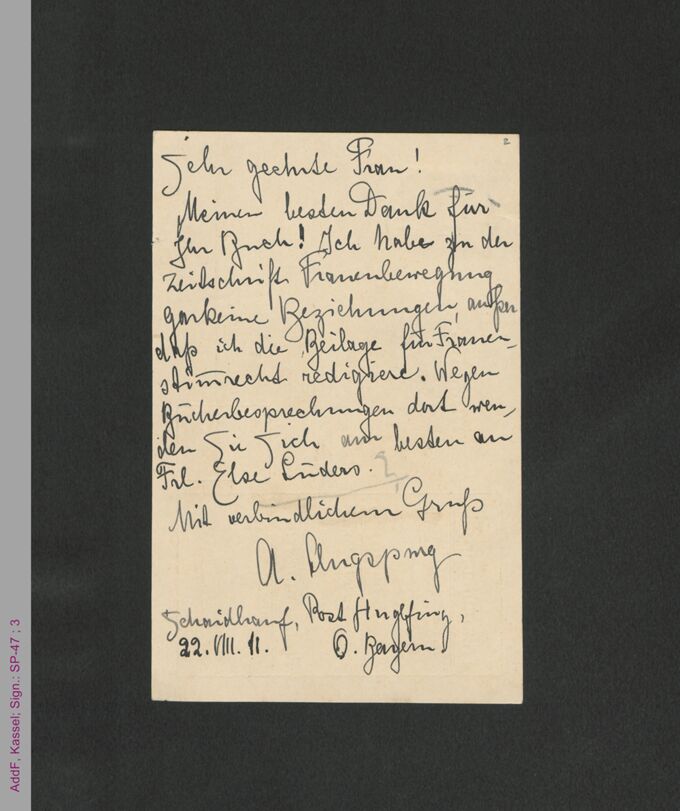 2
Sehr geehrte Frau!
Meinen besten Dank für
Ihr Buch! Ich habe zu der
Zeitschrift Frauenbewegung
garkeine Beziehungen, außer
daß ich die Beilage für Frauen-
stimrecht redigiere. Wegen
Bücherbesprechungen dort wen-
den Sie Sich am besten an
Frl. Else Lüders.
Mit verbindlichem Gruß
A. Augspurg
Schaidhauf, Post Huglfing,
22. VIII. 11. O. Bayern
AddF, Kassel; Sign.: SP-47 ; 3